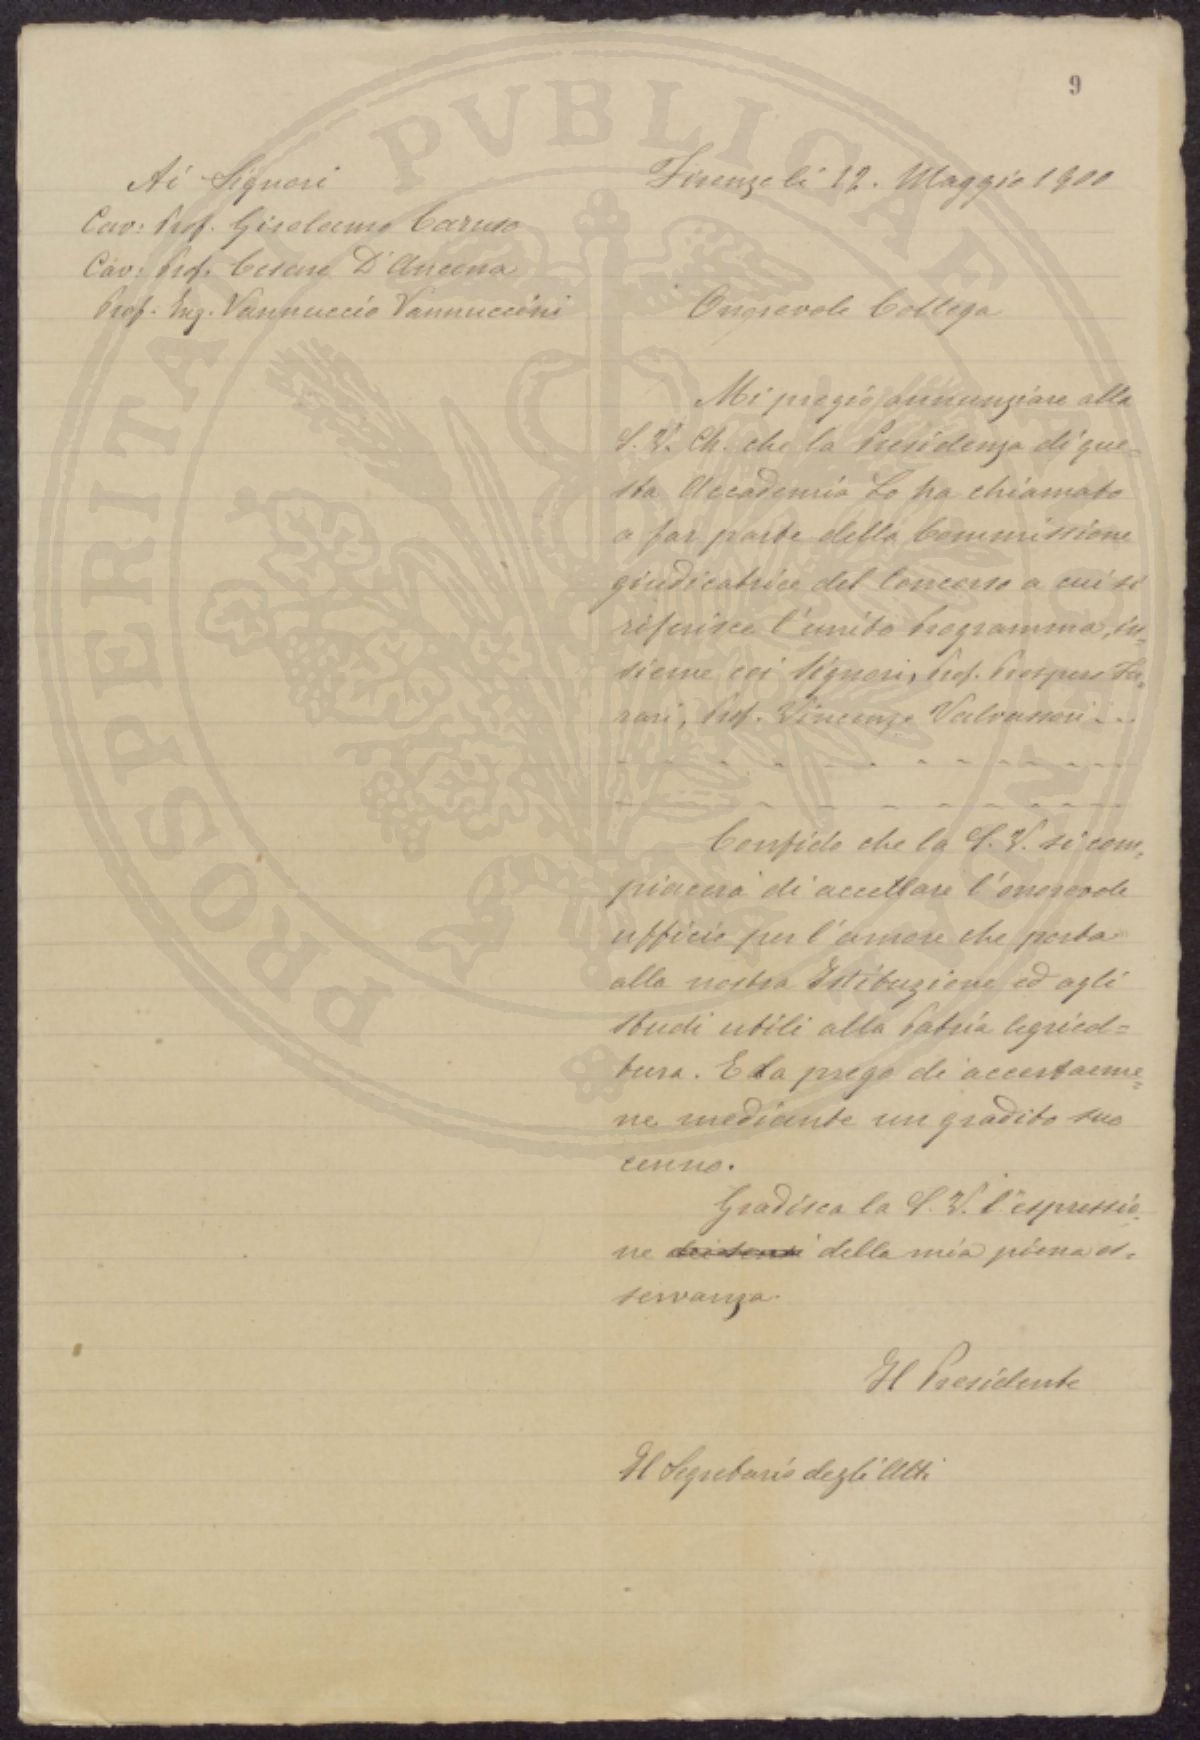 9
Ai Signori
Cav: Prof. Girolamo Caruso
Cav: Prof. Cesare D'Ancona
Prof. Ing. Vannuccio Vannuccini
Firenze li 12. Maggio 1900
Onorevole Collega
Mi pregio annunziare alla
S. V. Ch. che la Presidenza di que=
sta Accademia Lo ha chiamato
a far parte della Commissione
giudicatrice del Concorso a cui si
riferisce l'unito Programma, in=
sieme coi Signori, Prof. Prospero Fer=
rari, Prof. Vincenzo Valvassori - - -
Confido che la S. V. si com=
piacerà di accettare l'onorevole
ufficio per l'amore che porta
alla nostra Istituzione ed agli
studi utili alla Patria Agricol=
tura. E La prego di accertarme=
ne mediante un gradito suo
cenno.
Gradisca la S. V. l'espressio=
ne dei sensi della mia piena os=
servanza.
Il Presidente
Il Segretario degli Atti
PROSPERITATI PVBLICAE AVGENDAE